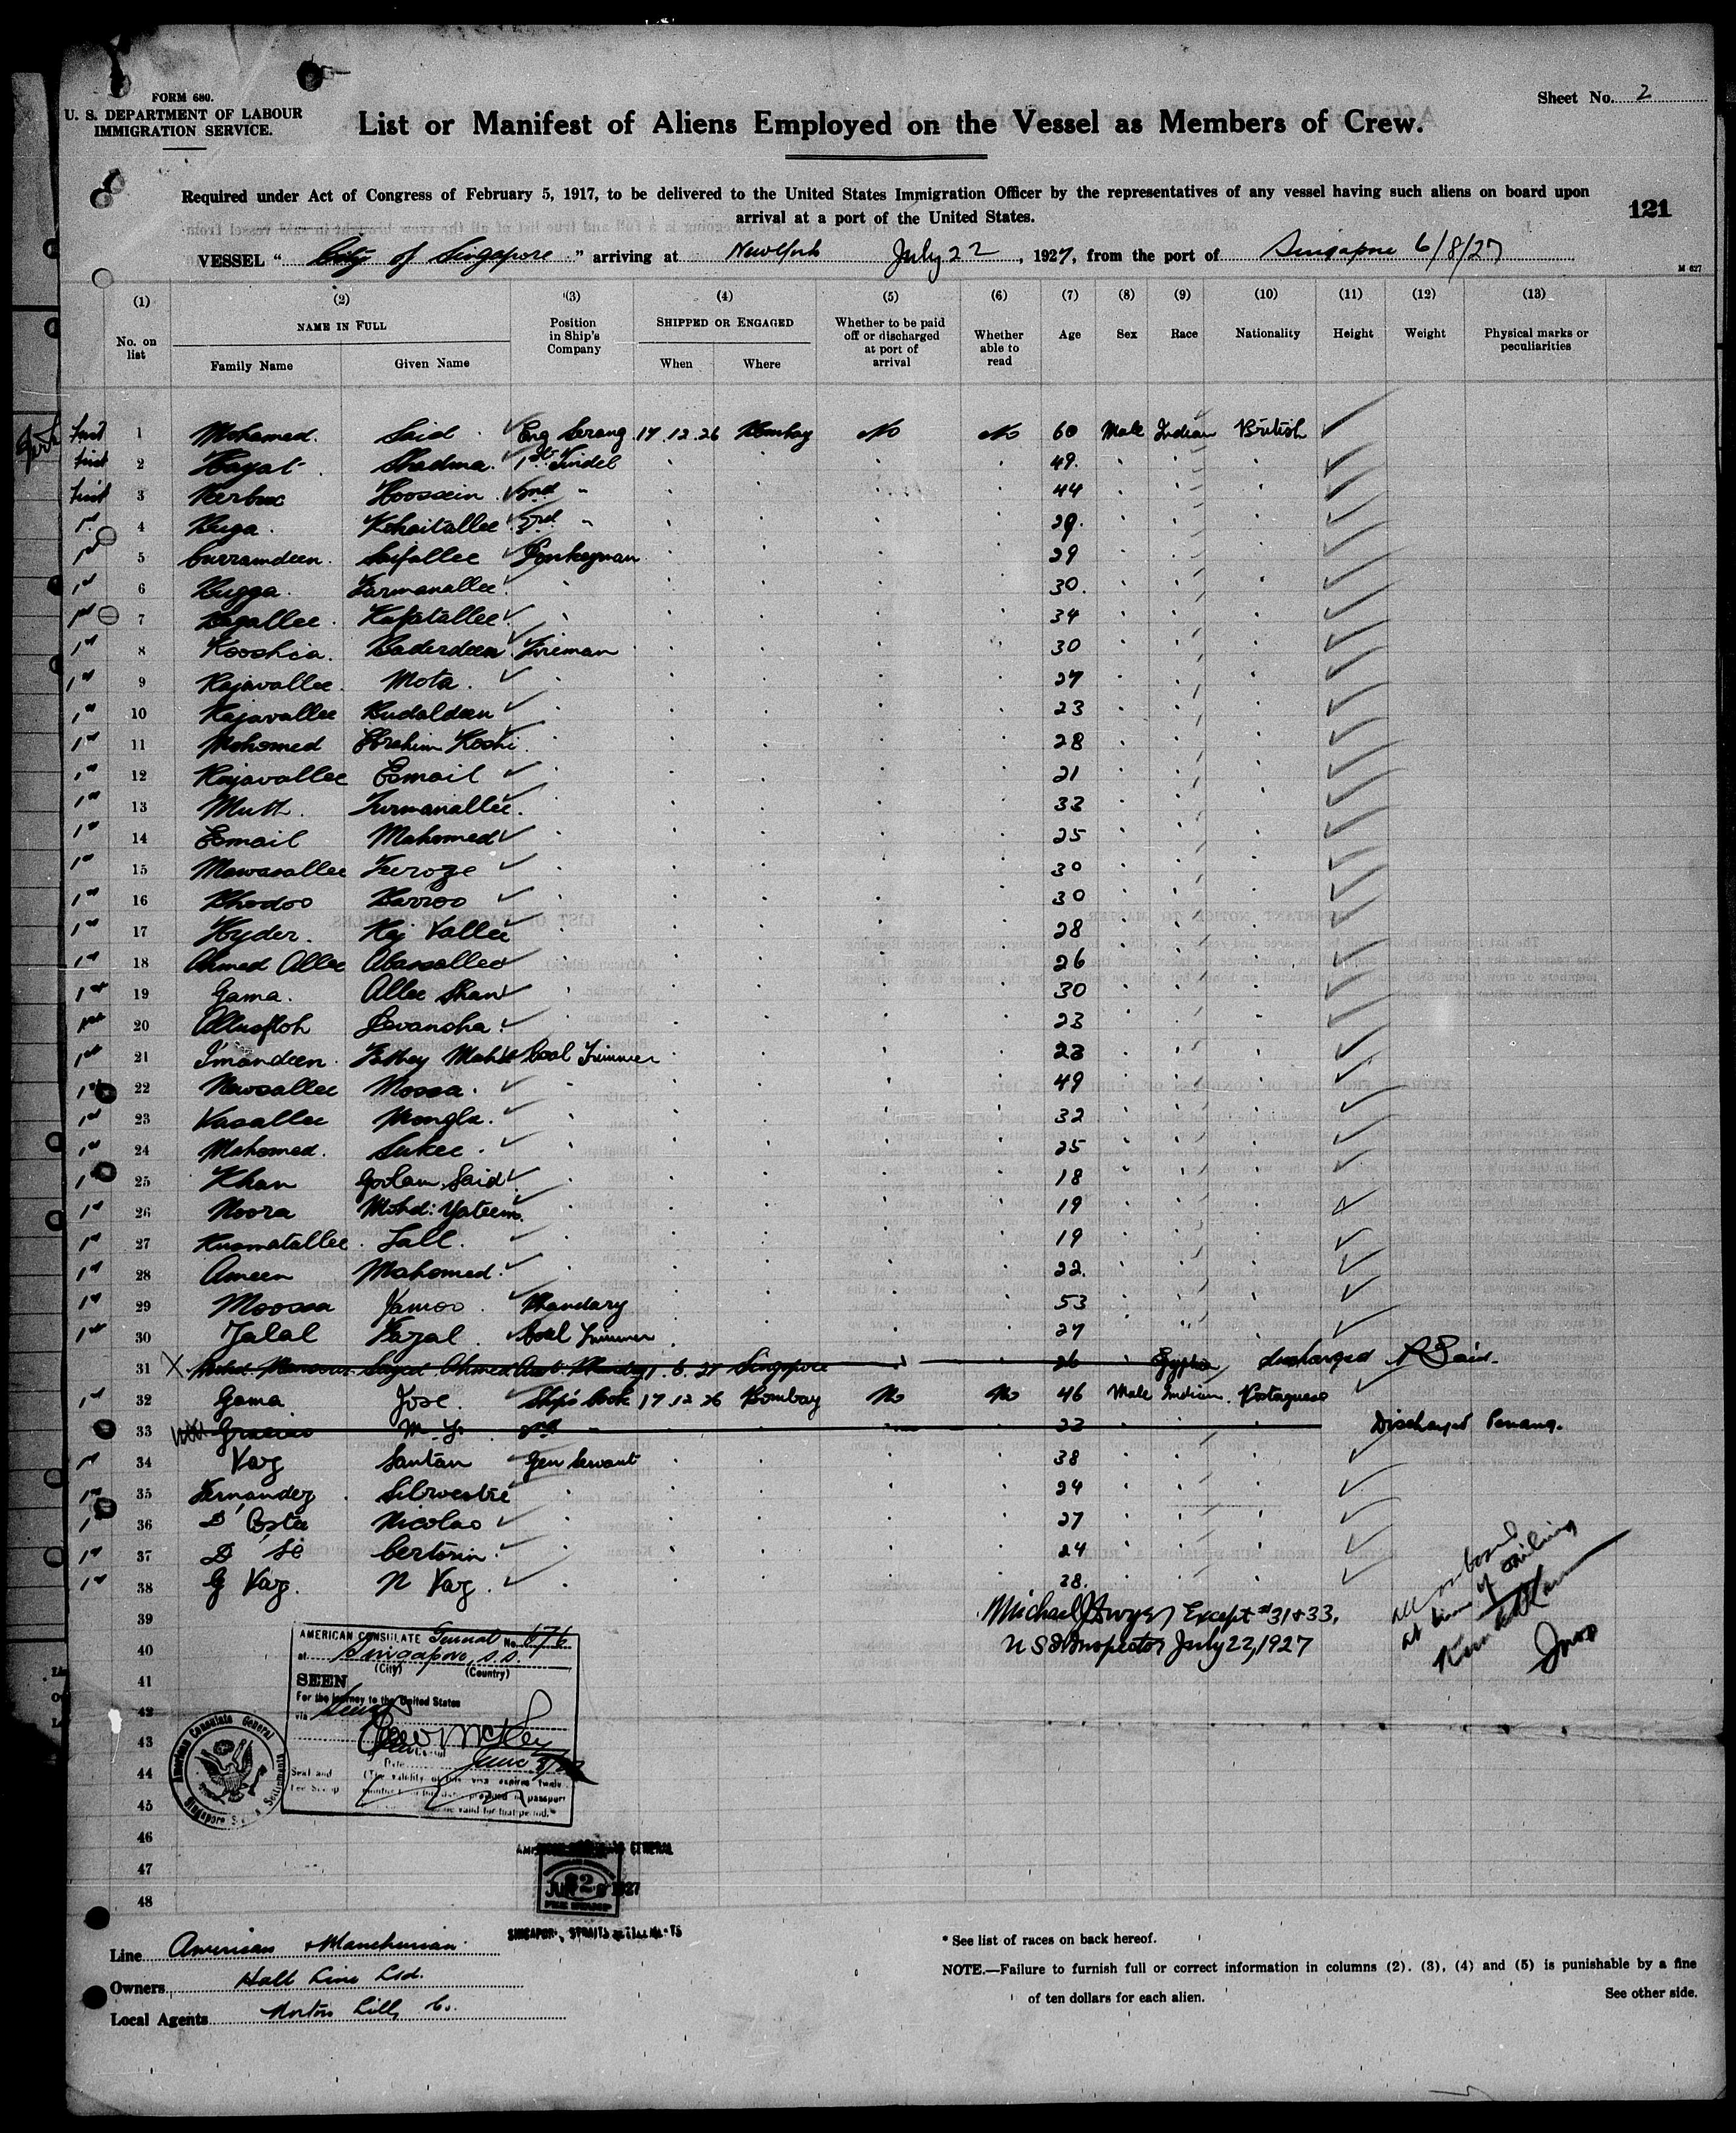 FORM 680.
U. S. DEPARTMENT OF LABOUR
IMMIGRATION SERVICE.
Sheet No. 2
List or Manifest of Aliens Employed on the Vessel as Members of Crew.
Required under Act of Congress of February 5, 1917, to be delivered to the United States Immigration Officer by the representatives of any vessel having such aliens on board upon
arrival at a port of the United States.
121
VESSEL " City of Singapore " arriving at New York July 22, 1927, from the port of Singapore 6/8/27
M 627
(1) (2) (3) (4) (5) (6) (7) (8) (9) (10) (11) (12) (13)
No. on list NAME IN FULL Family Name Given Name Position in Ship's Company SHIPPED OR ENGAGED When Where Whether to be paid off or discharged at port of arrival Whether able to read Age Sex Race Nationality Height Weight Physical marks or peculiarities
first 1 Mohamed Said Eng Serang 17.12.26 Bombay No No 60 Male Indian British
first 2 Hayat Shadma 1st Tindel 49
first 3 Peerbux Hoossein 2nd " 44
1st 4 Buga 3rd " 29
1st 5 Curramdeen Saifallee Donkeyman 29
1st 6 Bugga Farmanallee 30
1st 7 Bagallee Kafatallee 34
1st 8 Kooshia Baderdeen Fireman 30
1st 9 Rajavallee Mota 27
1st 10 Rajavallee Budaldeen 23
1st 11 Mohomed Ebrahim Koshi 28
1st 12 Rajavallee Esmail 21
1st 13 Mutt Furmanallee 33
1st 14 Esmail Mahomed 25
1st 15 Mowasallee Feroze 30
1st 16 Bhodoo Barroo 30
1st 17 Hyder Raj Vallee 28
1st 18 Ahmed Allee Abassallee 26
1st 19 Gama Allee Shan 30
1st 20 Jevansha 23
1st 21 Imandeen Fathey Mahd Coal Trimmer 23
1st 22 Newsallee Moosa 49
1st 23 Vasallee Mongla 32
1st 24 Mahomed Sukee 25
1st 25 Khan Goolam Said 18
1st 26 Noora Mohd: Yateem 19
1st 27 Rusmatallee Lall 19
1st 28 Ameen Mahomed 22
1st 29 Moossa Jamoo Bhandary 53
1st 30 Jalal Fazal Coal Trimmer 27
31 X Mansour Sayed Ahmed 1.6.27 Singapore 26 Egyptian discharged P Said
1st 32 Gama Jose Ship's Cook 17.12.26 Bombay No No 46 Male Indian Portuguese
33 Gracias M. 2nd " 23 Discharged Penang.
1st 34 Vaz Santan Gen Servant 38
1st 35 Fernandez Silvestre 24
1st 36 D'Costa Nicolao 27
1st 37 D' Sa Certorin 24
1st 38 G Vaz N Vaz 28
39
40
41
42
43
44
45
46
47
48
Michael J Dwyer Except #31 & 33.
U S I Inspector July 22, 1927
All on board
at time of sailing
AMERICAN CONSULATE General No. 676
at Singapore, S.S.
(City) (Country)
SEEN
For the journey to the United States
via Suez
Date June 8/27
Seal and
Fee Stamp
(The validity of this visa expires twelve
American Consulate General
Singapore Straits Settlements
AMERICAN CONSULATE GENERAL
JUN 8 1927
$2
FEE STAMP
SINGAPORE, STRAITS SETTLEMENTS
Line American & Manchurian
Owners Hall Line Ltd.
Local Agents Norton Lilly Co.
* See list of races on back hereof.
NOTE.—Failure to furnish full or correct information in columns (2). (3), (4) and (5) is punishable by a fine
of ten dollars for each alien.
See other side.